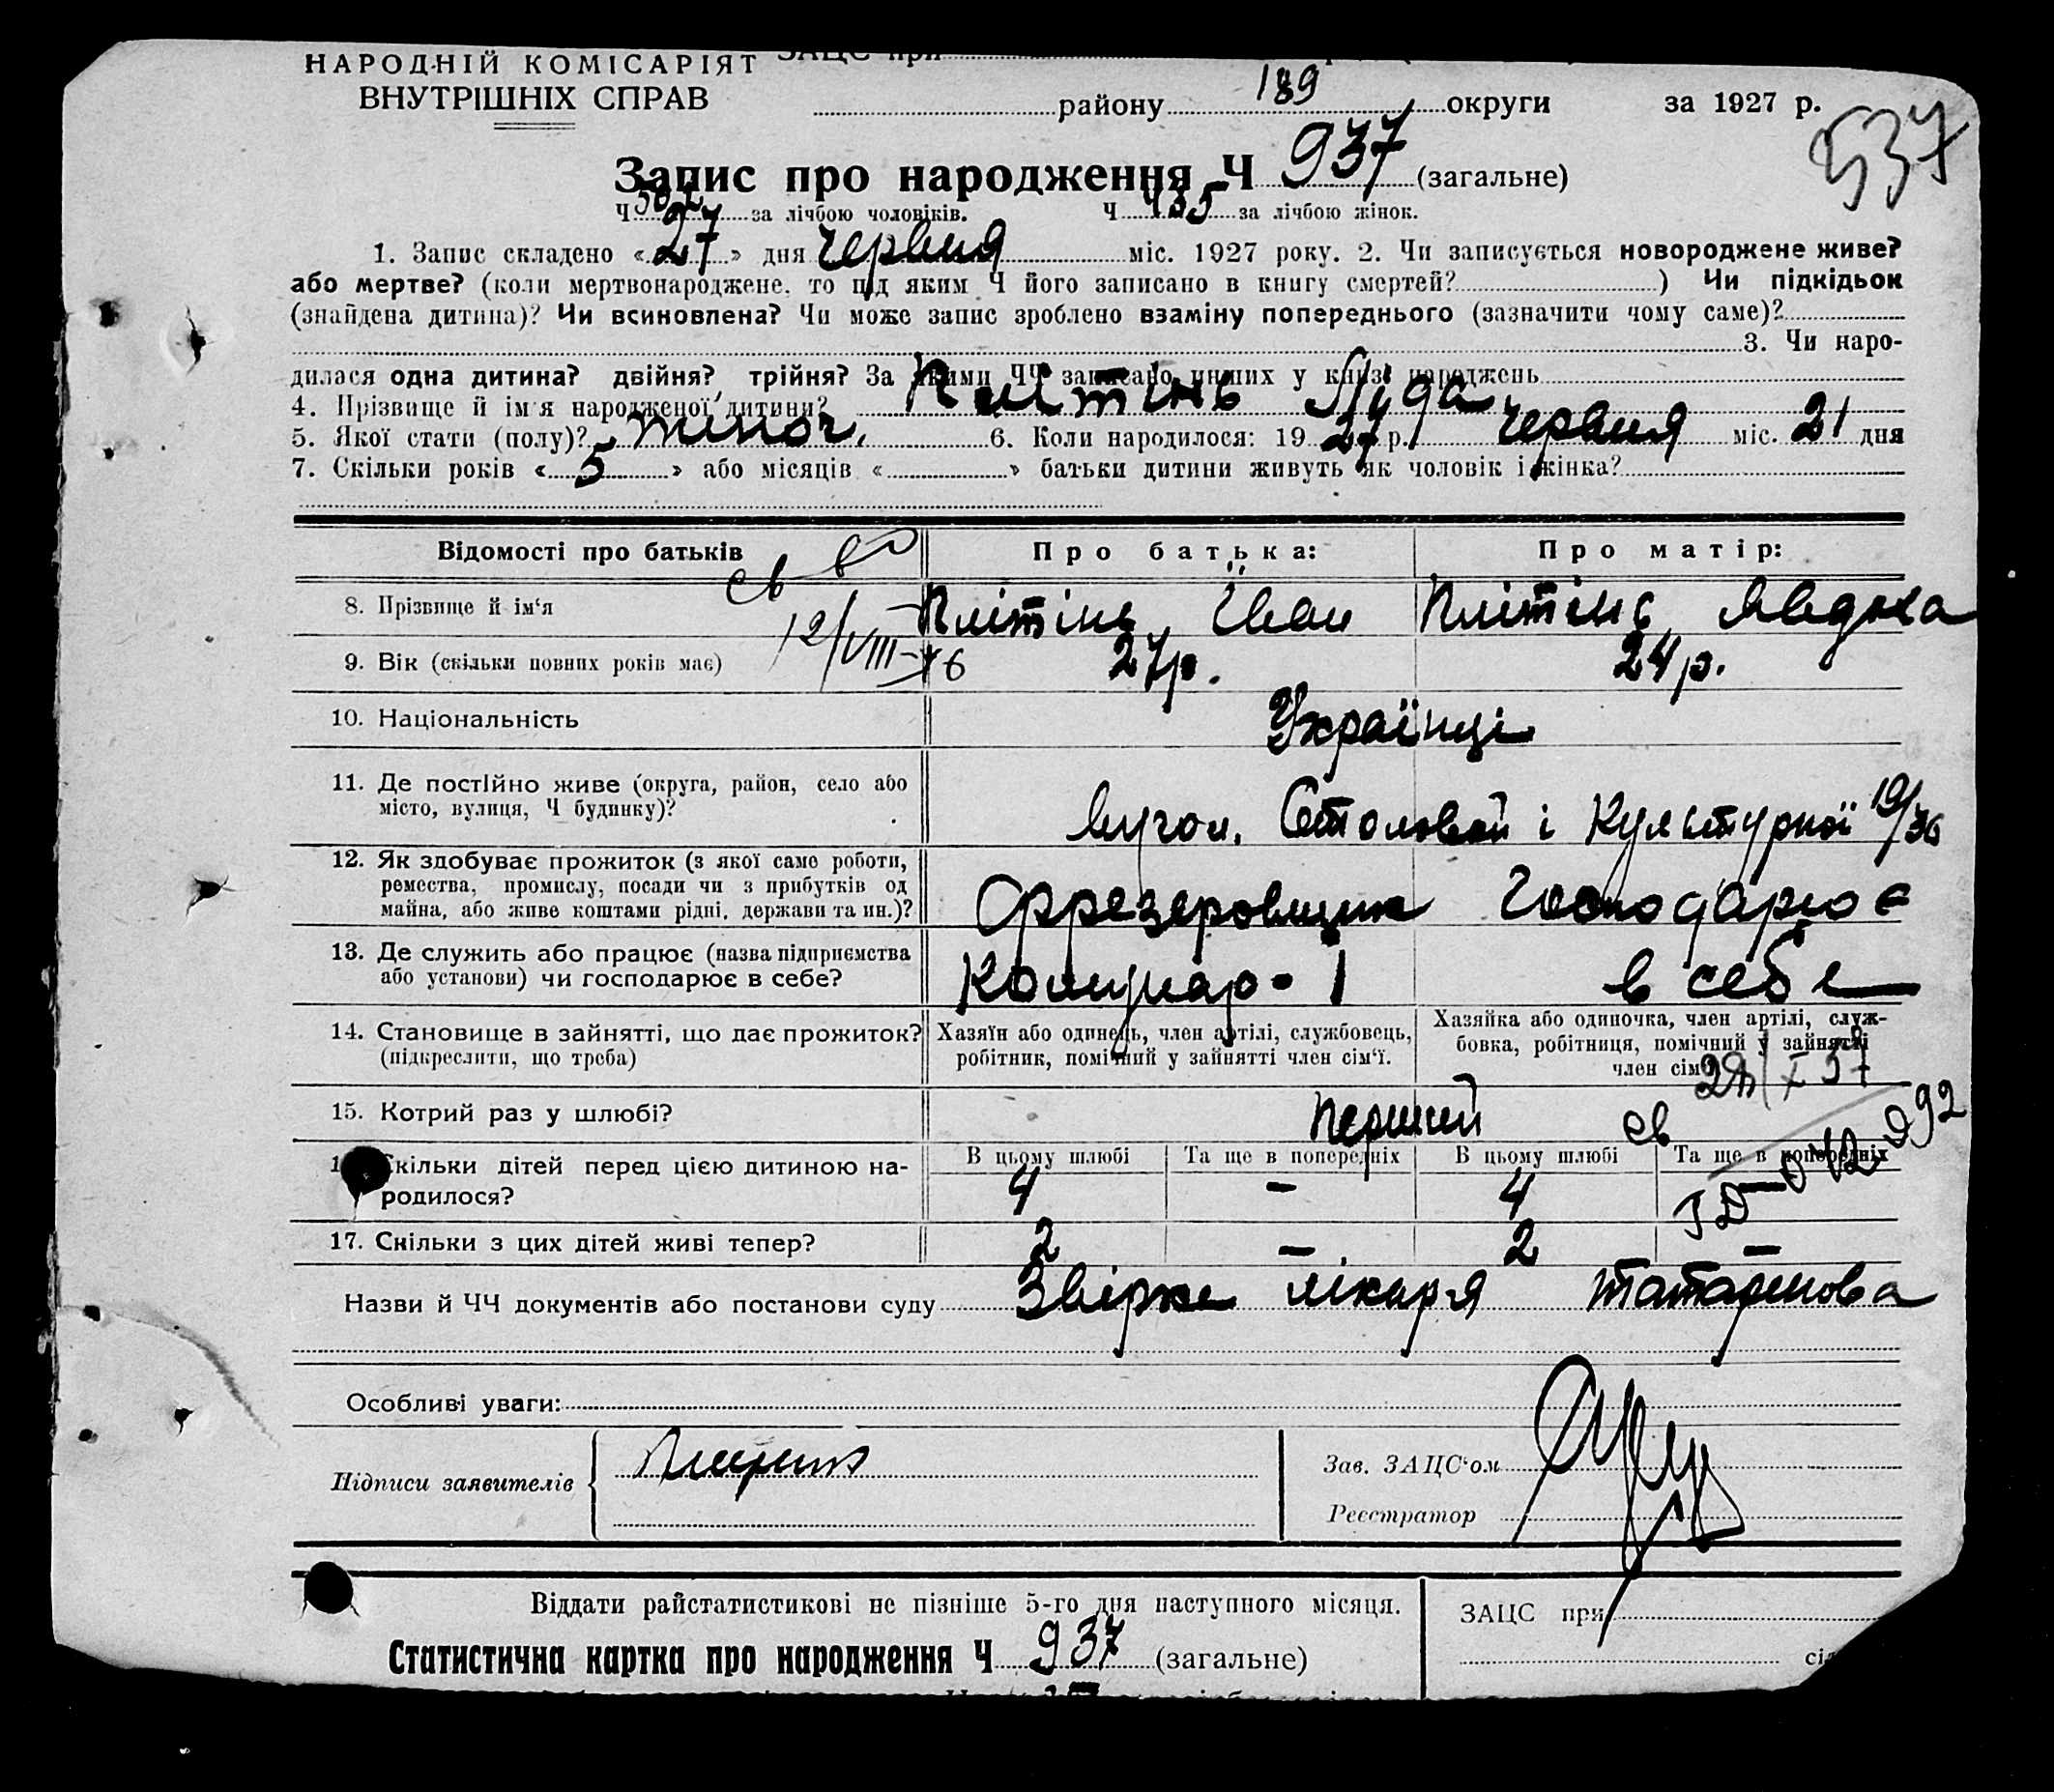 НАРОДНІЙ КОМІСАРІЯТ ЗАЦС при
ВНУТРІШНІХ СПРАВ району 189 округи за 1927 р.
937
Запис про народження Ч 937 (загальне)
Ч 502 за лічбою чоловіків. Ч 435 за лічбою жінок.
1. Запис складено «27» дня червня міс. 1927 року. 2. Чи записується новороджене живе?
або мертве? (коли мертвонароджене, то під яким Ч його записано в книгу смертей? ) Чи підкідьок
(знайдена дитина)? Чи всиновлена? Чи може запис зроблено взаміну попереднього (зазначити чому саме)?
3. Чи наро-
дилася одна дитина? двійня? трійня? За якими ЧЧ записано инших у книзі народжень
4. Прізвище й ім'я народженої дитини? Плітінь Лида
5. Якої стати (полу)? жіноч. 6. Коли народилося: 1927 р. червня міс. 21 дня
7. Скільки років «5» або місяців « » батьки дитини живуть як чоловік і жінка?
Відомості про батьків Про батька: Про матір:
св во
8. Прізвище й ім'я Плітінь Іван Плітінь Явдоха
12/VIII-46
9. Вік (скільки повних років має) 27р. 24р.
10. Національність Українці
11. Де постійно живе (округа, район, село або
місто, вулиця, Ч будинку)? і Культурної 19/36
12. Як здобуває прожиток (з якої саме роботи,
ремества, промислу, посади чи з прибутків од
майна, або живе коштами рідні, держави та ин.)? Фрезеровщик Господарює
13. Де служить або працює (назва підприємства
або установи) чи господарює в себе? Комунар-1 в себе
14. Становище в зайнятті, що дає прожиток?
(підкреслити, що треба)
Хазяїн або одинець, член артілі, службовець,
робітник, помічний у зайнятті член сім'ї.
Хазяйка або одиночка, член артілі, служ-
бовка, робітниця, помічний у зайнятті
член сім'ї
15. Котрий раз у шлюбі? Перший св
16. Скільки дітей перед цією дитиною на-
родилося?
В цьому шлюбі Та ще в попередніх В цьому шлюбі Та ще в попередніх
4 – 4 –
17. Скільки з цих дітей живі тепер? 2 – 2 –
Назви й ЧЧ документів або постанови суду лікаря Татаренова
Особливі уваги:
Підписи заявителів
Зав. ЗАЦС'ом
Реєстратор
Віддати райстатистикові не пізніше 5-го дня наступного місяця.
ЗАЦС при
Статистична картка про народження Ч 937 (загальне)